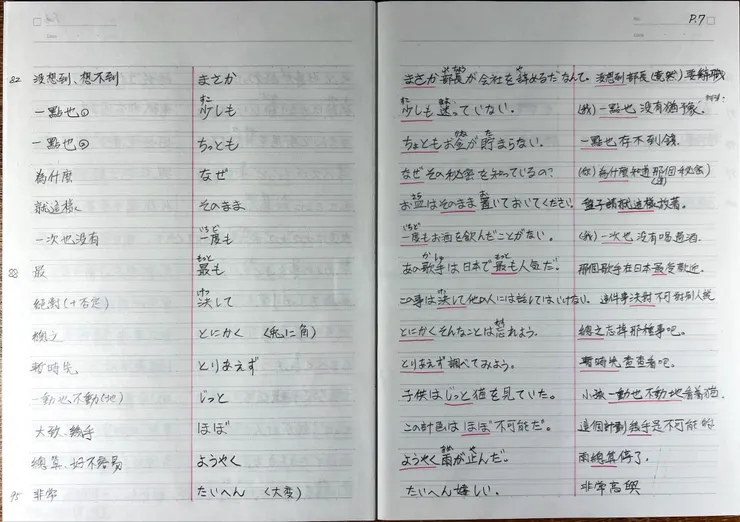 P.7
82 沒想到、想不到 まさか
一點也① 少しも
すこ
一點也② ちっとも
為什麼 なぜ
就這樣 そのまま
一次也沒有 一度も
いちど
88 最 最も
もっと
絕對(+否定) 決して
けっ
總之 とにかく (兎に角)
暫時先 とりあえず
一動也不動(地) じっと
大致、幾乎 ほぼ
總算、好不容易 ようやく
95 非常 たいへん (大変)
まさか部長が会社を辞めるだなんて。 沒想到部長(竟然)要辭職
少しも迷っていない。 (我)一點也沒有猶豫.
すこ まよ
ちょともお金が貯まらない。 一點也存不到錢.
かね た
なぜその秘密を知っているの? (你)為什麼知道那個秘密
お皿はそのまま置いておいてください 盤子請就這樣放著.
さら お
一度もお酒を飲んだことがない。 (我)一次也沒有喝過酒.
いちど
あの歌手は日本で最も人気だ。 那個歌手在日本最受歡迎.
かしゅ もっと
この事は決して他の人には話してはいけない。 這件事決對不可對別人說
けっ
とにかくそんなことは忘れよう. 總之忘掉那種事吧。
とりあえず調べてみよう。 暫時先查查看吧。
子供はじっと猫を見ていた。 小孩一動也不動地看着猫.
この計画はほぼ不可能だ。 這個計劃幾乎是不可能的
ようやく雨が止んだ。 雨總算停了.
あめ や
たいへん嬉しい. 非常高興